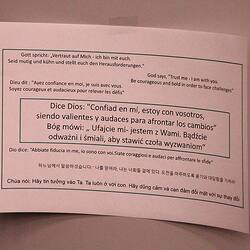 Gott spricht: „Vertraut auf Mich - ich bin mit euch.
Seid mutig und kühn und stellt euch den Herausforderungen."
God says, "Trust me - I am with you.
Be courageous and bold in order to face challenges"
Dieu dit : "Ayez confiance en moi, je suis avec vous.
Soyez courageux et audacieux pour relever les défis"
Dice Dios: "Confiad en mí, estoy con vosotros,
siendo valientes y audaces para afrontar los cambios"
Bóg mówi: „ Ufajcie mi- jestem z Wami. Bądźcie
odważni i śmiali, aby stawić czoła wyzwaniom"
Dio dice: "Abbiate fiducia in me, io sono con voi.Siate coraggiosi e audaci per affrontare le sfide"
하느님께서 말씀하셨습니다 나를 믿어라, 나는 너희와 함께
Chúa nói: Hãy tin tưởng vào Ta. Ta luôn ở với con. Hãy dũng cảm và can đảm đối mặt với sự thay đổi.